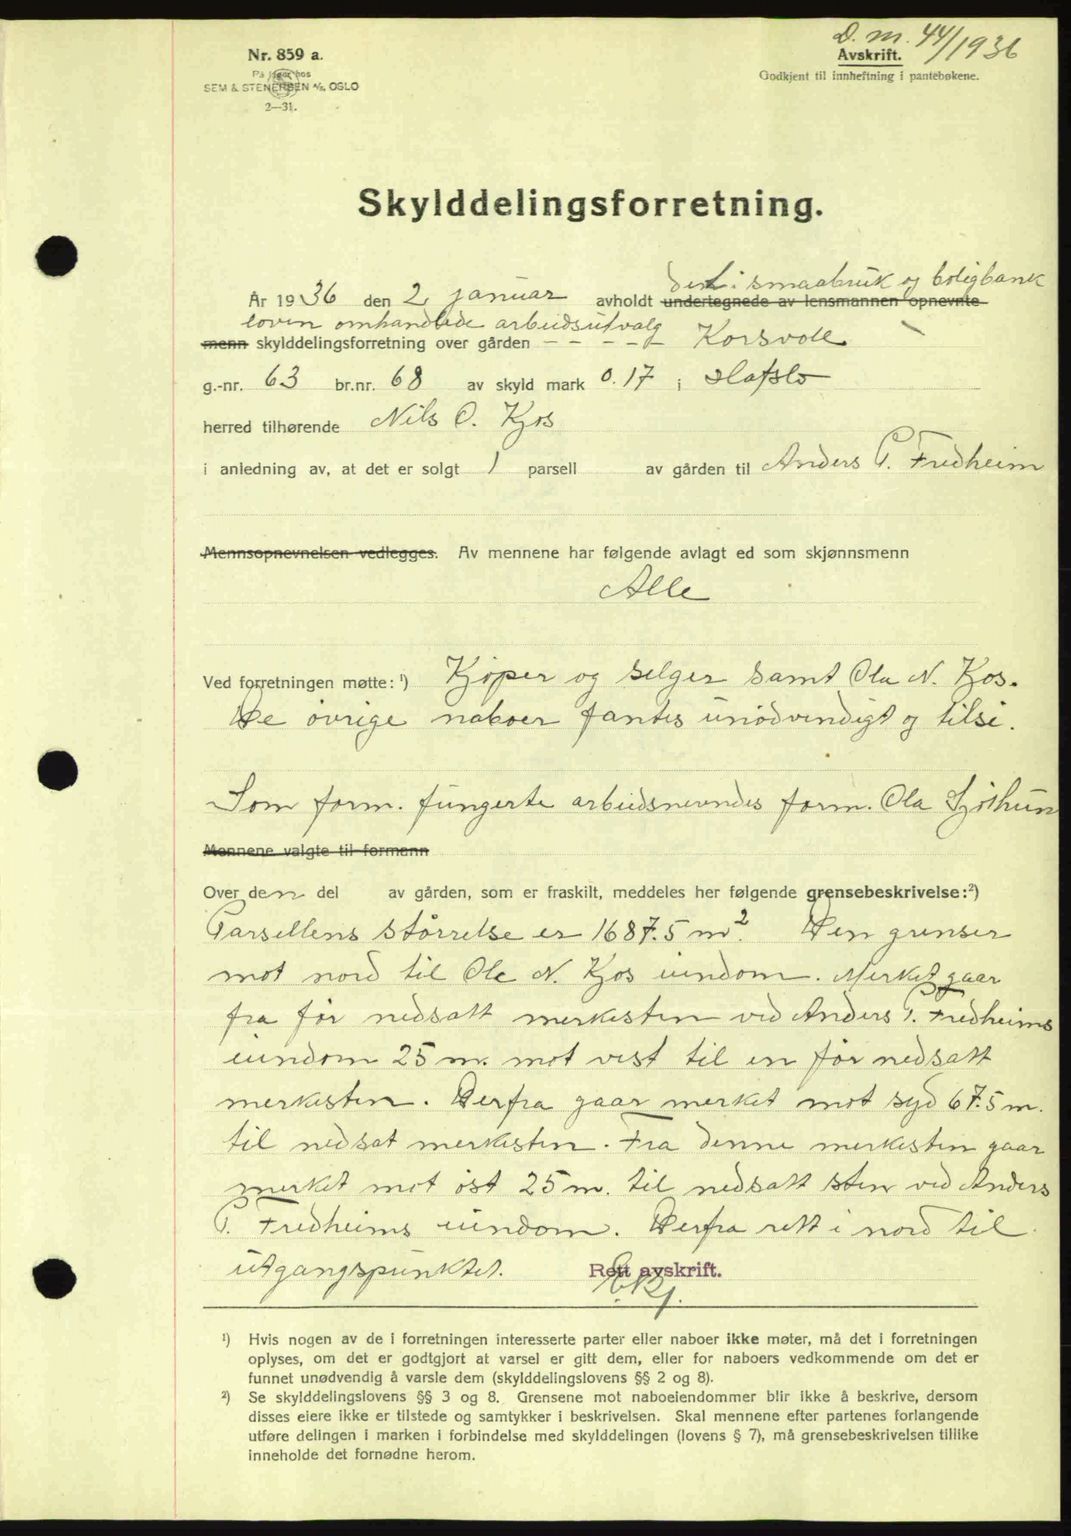 D. m. 44/1936
Nr. 859 a.
Avskrift.
På lager hos
Godkjent til innheftning i pantebøkene.
SEM & STENERSEN A/S, OSLO
2—31.
Skylddelingsforretning.
den i smaabruk og boligbank
År 1936 den 2 januar avholdt undertegnede av lensmannen opnevnte
loven omhandlede arbeidsutvalg
menn skylddelingsforretning over gården - - - - Korsvoll
g.-nr. 63 br.nr. 68 av skyld mark 0.17 i Hafslo
herred tilhørende Nils O. Kjos
i anledning av, at det er solgt 1 parsell av gården til Anders P. Fredheim
Mennsopnevnelsen vedlegges. Av mennene har følgende avlagt ed som skjønnsmenn
Alle
Ved forretningen møtte: ¹) Kjøper og selger samt Ola N. Kjos.
De øvrige naboer fantes unødvendigt og tilsi.
Som form. fungerte arbeidsnevndes form. Ola Sjøthun
Mennene valgte til formann
Over den del av gården, som er fraskilt, meddeles her følgende grensebeskrivelse: ²)
Parsellens størrelse er 1687.5 m². Den grenser
mot nord til Ole N. Kjos eiendom. Merket gaar
fra før nedsatt merkesten ved Anders P. Fredheims
eiendom 25 m. mot vest til en før nedsatt
merkesten. Derfra gaar merket mot syd 67.5 m.
til nedsat merkesten. Fra denne merkesten gaar
merket mot øst 25 m. til nedsatt sten ved Anders
P. Fredheims eiendom. Derfra rett i nord til
utgangspunktet. Rett avskrift.
¹) Hvis nogen av de i forretningen interesserte parter eller naboer ikke møter, må det i forretningen
oplyses, om det er godtgjort at varsel er gitt dem, eller for naboers vedkommende om det er
funnet unødvendig å varsle dem (skylddelingslovens §§ 2 og 8).
²) Se skylddelingslovens §§ 3 og 8. Grensene mot naboeiendommer blir ikke å beskrive, dersom
disses eiere ikke er tilstede og samtykker i beskrivelsen. Skal mennene efter partenes forlangende
utføre delingen i marken i forbindelse med skylddelingen (lovens § 7), må grensebeskrivelsen tillike
inneholde det fornødne herom.